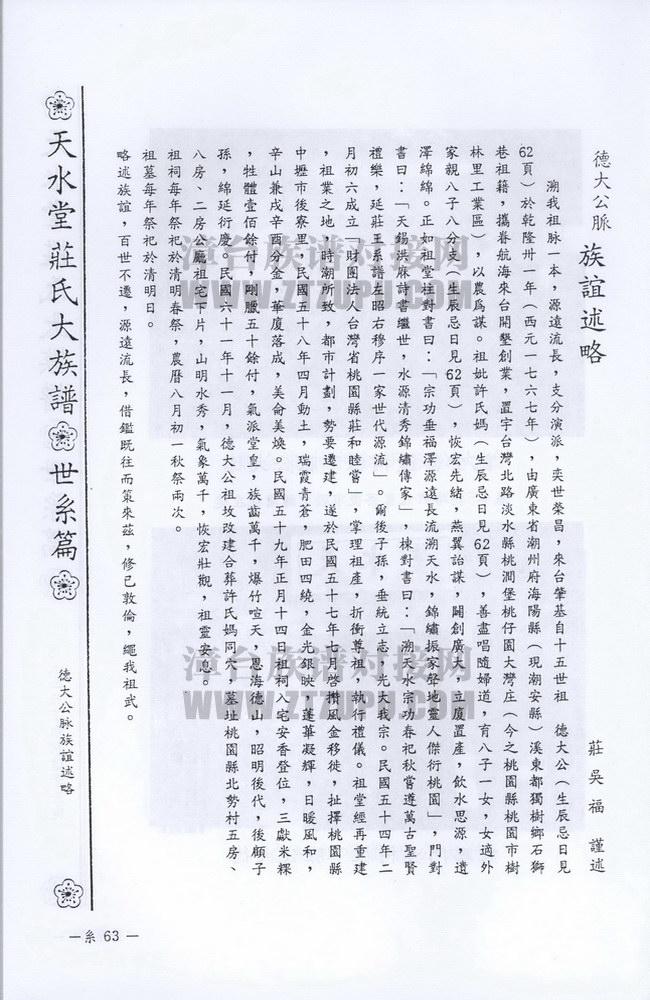 德大公脈 族誼述略
莊吳福 謹述
溯我祖脉一本，源遠流長，支分演派，奕世榮昌，來台肇基自十五世祖 德大公（生辰忌日見
62頁）於乾隆卅一年（西元一七六七年），由廣東省潮州府海陽縣（現潮安縣）溪東都獨樹鄉石獅
巷祖籍，攜眷航海來台開墾創業，置宇台灣北路淡水縣桃澗堡桃仔園大灣庄（今之桃園縣桃園市樹
林里工業區），以農爲謀。祖妣許氏媽（生辰忌日見62頁），善盡唱隨婦道，育八子一女，女適外
家親八子八分支（生辰忌日見62頁），恢宏先緒，燕翼詒謀，闢創廣大，立廈置產，飲水思源，遺
澤綿綿。正如祖堂柱對書曰：「宗功垂福澤源遠長流溯天水，錦繡振家聲地靈人傑衍桃園」，門對
書曰：「天錫洪麻詩書繼世，水源清秀錦繡傳家」，棟對書曰：「溯天水宗功春祀秋嘗遵萬古聖賢
禮樂，延莊王系譜左昭右穆序一家世代源流」。爾後子孫，垂統立志，光大我宗。民國五十四年二
月初六成立「財團法人台灣省桃園縣莊和睦嘗」，掌理祖產，折衝尊祖，執行禮儀。祖堂經再重建
，祖業之地，時潮所致，都市計劃，勢要遷建，遂於民國五十七年七月啓攢風金移徙，扯擇桃園縣
中壢市後寮里，民國五十八年四月動土，瑞霞青蒼，肥田四繞，金光銀映，蓬蓽凝輝，日暖風和，
辛山兼戌辛酉分金，華廈落成，美侖美煥。民國五十九年正月十四日祖祠八宅安香登位，三獻米粿
，牲體壹佰餘付，剛臘五十餘付，氣派堂皇，族齒萬千，爆竹喧天，恩海德山，昭明後代，後頤子
孫，綿延衍慶，民國六十一年十一月，德大公祖坟改建合葬許氏媽同穴，墓址桃園縣北勢村五房、
八房、二房公廳祖宅下片，山明水秀，氣象萬千，恢宏壯觀，祖靈安息。
祖祠每年祭祀於清明春祭，農曆八月初一秋祭兩次。
祖墓每年祭祀於清明日。
略述族誼，百世不遷，源遠流長，借鑑既往而策來茲，修己敦倫，繩我祖武。
天水堂莊氏大族譜 世系篇
德大公脈族誼述略
—系 63—
漳台族谱对接网
WWW.ZTZUPU.COM
漳台族谱对接网
WWW.ZTZUPU.COM